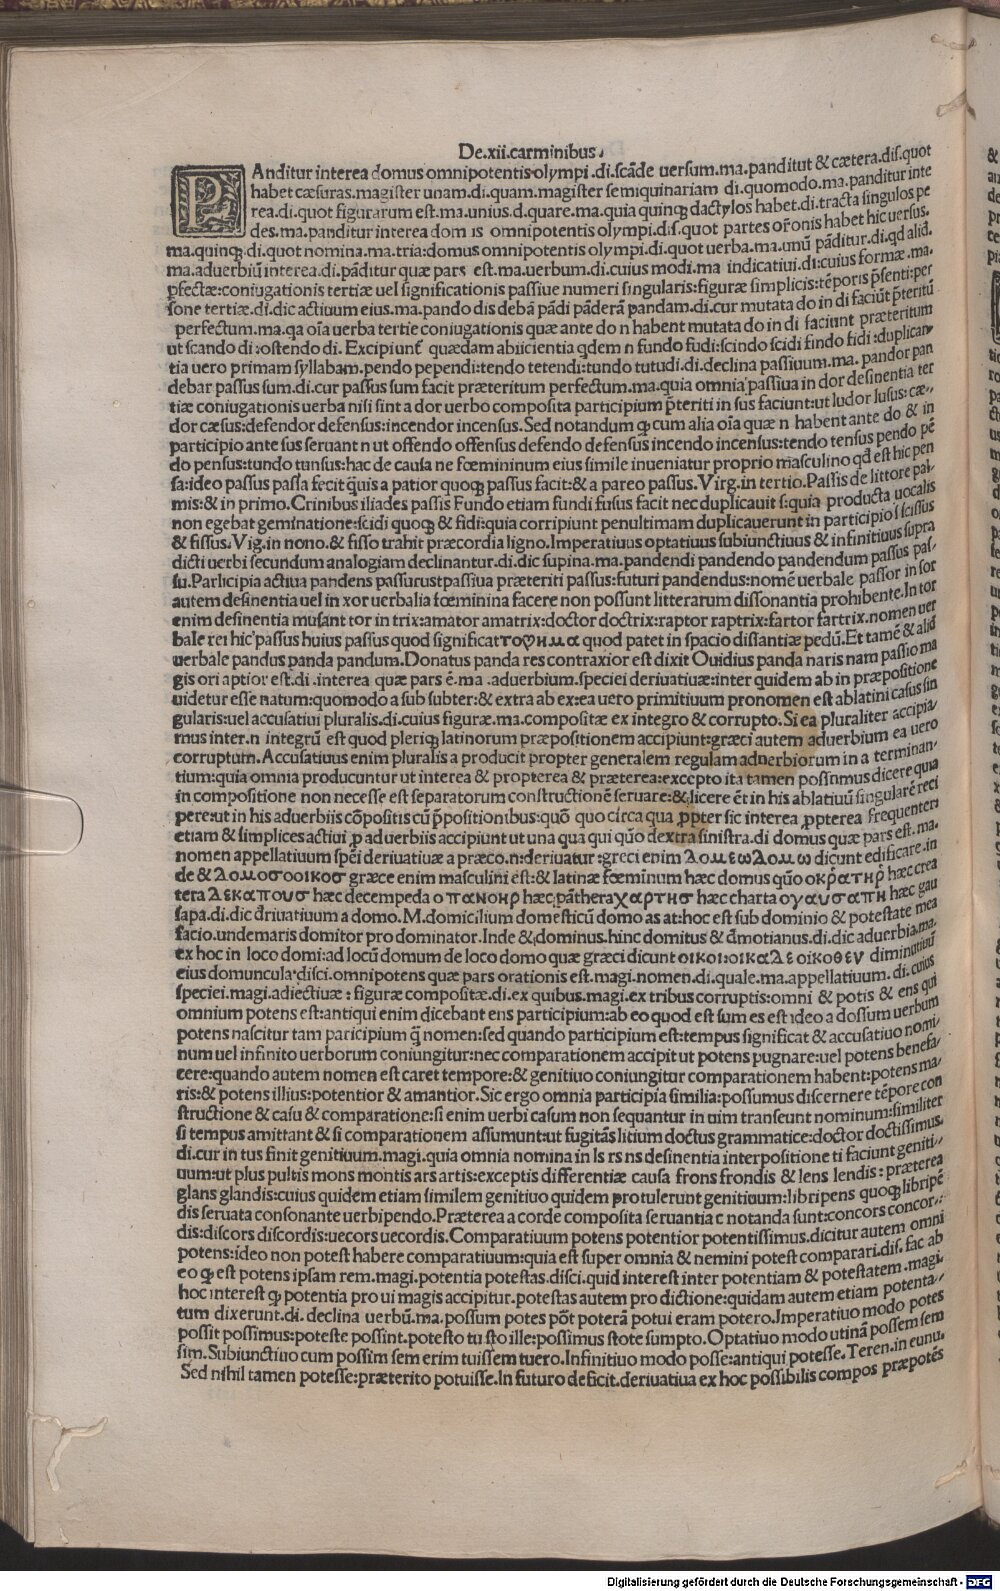 De.xii.carminibus.
PAnditur interea domus omnipotentis olympi.di.scãde uersum.ma.panditut & cætera.dis.quot
habet cæsuras.magister unam.di.quam.magister semiquinariam di.quomodo.ma.panditur inte
rea.di.quot figurarum est.ma.unius.d.quare.ma.quia quinqꝫ dactylos habet.di.tracta singulos pe
des.ma.panditur interea dom is omnipotentis olympi.dis.quot partes or̃onis habet hic uersus.
ma.quinqꝫ.di.quot nomina.ma.tria:domus omnipotentis olympi.di.quot uerba.ma.unũ pãditur.di.qd aliđ.
ma.aduerbiũ interea.di.pãditur quæ pars est.ma.uerbum.di.cuius modi.ma indicatiui.di:cuius formæ.ma.
ꝑfectæ:coniugationis tertiæ uel significationis passiue numeri singularis:figuræ simplicis:tẽporis p̃senti:per
sone tertiæ.di.dic actiuum eius.ma.pando dis debã pãdi pãderã pandam.di.cur mutata do in di faciũt p̃teritũ
perfectum.ma.qa oĩa uerba tertie coniugationis quæ ante do n habent mutata do in di faciunt præteritum
ut scando di:ostendo di. Excipiunt̃ quædam abiicientia qdem n fundo fudi:scindo scidi findo fidi:duplican
tia uero primam syllabam.pendo pependi:tendo tetendi:tundo tutudi.di.declina passiuum.ma.pandor pan
debar passus sum.di.cur passus sum facit præteritum perfectum.ma.quia omnia passiua in dor desinentia ter
tiæ coniugationis uerba nisi sint a dor uerbo composita participium p̃teriti in sus faciunt:ut ludor lusus:cæ-
dor cæsus:defendor defensus:incendor incensus.Sed notandum qꝫ cum alia oĩa quæ n habent ante do & in
participio ante sus seruant n ut offendo offensus defendo defensus incendo incensus:tendo tensus pendo pẽ
do pensus:tundo tunsus:hac de causa ne fœmininum eius simile inueniatur proprio masculino qđ est hic pen
sa:ideo passus passa fecit q̃uis a patior quoqꝫ passus facit:& a pareo passus.Virg.in tertio.Passis de littore pal-
mis:& in primo.Crinibus iliades passis Fundo etiam fundi fusus facit nec duplicauit s:quia producta uocalis
non egebat geminatione:scidi quoqꝫ & fidi:quia corripiunt penultimam duplicauerunt in participio s scissus
& fissus.Vig.in nono.& fisso trahit præcordia ligno.Imperatiuus optatiuus subiunctiuus & infinitiuus supra
dicti uerbi secundum analogiam declinantur.di.dic supina.ma.pandendi pandendo pandendum passus pas-
su.Participia actiua pandens passurustpassiua præteriti passus:futuri pandendus:nomẽ uerbale passor in sor
autem desinentia uel in xor uerbalia fœminina facere non possunt litterarum dissonantia prohibente.In tor
enim desinentia mutant tor in trix:amator amatrix:doctor doctrix:raptor raptrix:fartor fartrix.nomen uer
bale rei hic passus huius passus quod significat τοϙημα quod patet in spacio distantiæ pedũ.Et tamẽ & aliđ
uerbale pandus panda pandum.Donatus panda res contraxior est dixit Ouidius panda naris nam passio ma
gis ori aptior est.di.interea quæ pars ẽ.ma .aduerbium.speciei deriuatiuæ:inter quidem ab in præpositione
uidetur esse natum:quomodo a sub subter:& extra ab ex:ea uero primitiuum pronomen est ablatini casus sin
gularis:uel accusatiui pluralis.di.cuius figuræ.ma.compositæ ex integro & corrupto.Si ea pluraliter accipia/
mus inter.n integrũ est quod pleriqꝫ latinorum præpositionem accipiunt:græci autem aduerbium ea uero
corruptum.Accusatiuus enim pluralis a producit propter generalem regulam aduerbiorum in a terminan/
tium:quia omnia producuntur ut interea & propterea & præterea:excepto ita tamen possumus dicere quia
in compositione non necesse est separatorum constructionẽ seruare:& licere ẽt in his ablatiuũ singularẽ reci
pere:ut in his aduerbiis cõpositis cũ p̃positionibus:quõ quo circa qua ꝓpter sic interea ꝓpterea frequenter
etiam & simplices actiui ꝓ aduerbiis accipiunt ut una qua qui quõ dextra sinistra.di domus quæ pars est.ma.
nomen appellatiuum spẽi deriuatiuæ a præco.n:deriuatur :greci enim Δομεω Δομω dicunt edificare.in
de & Δομοσ οοικοσ græce enim masculini est:& latinæ fœminum hæc domus qũo οκρατηρ hæc crea
tera Δεκαπουσ hæc decempeda ο πανοηρ hæc pãthera χαρτησ hæc charta ογαυσαπη hæc gau
sapa.di.dic đriuatiuum a domo.M.domicilium domesticũ domo as at:hoc est sub dominio & potestate mea
facio.undemaris domitor pro dominator.Inde & dominus.hinc domitus & đmotianus.di.dic aduerbia.ma.
ex hoc in loco domi:ad locũ domum de loco domo quæ græci dicunt οικοι:οικαΔε οικοθεν diminutiuũ
eius domuncula disci.omnipotens quæ pars orationis est.magi.nomen.di.quale.ma.appellatiuum. di.cuius
speciei.magi.adiectiuæ : figuræ compositæ.di.ex quibus.magi.ex tribus corruptis:omni & potis & ens qui
omnium potens est:antiqui enim dicebant ens participium:ab eo quod est sum es est ideo a dossum uerbum
potens nascitur tam paricipium q̃ nomen:sed quando participium est:tempus significat & accusatiuo nomi-
num uel infinito uerborum coniungitur:nec comparationem accipit ut potens pugnare:uel potens benefa/
cere:quando autem nomen est caret tempore:& genitiuo coniungitur comparationem habent:potens ma/
ris:& potens illius:potentior & amantior.Sic ergo omnia participia similia:possumus discernere tẽpore con
structione & casu & comparatione:si enim uerbi casum non sequantur in uim transeunt nominum:similiter
si tempus amittant & si comparationem assumunt:ut fugitãs litium doctus grammatice:doctor doctissimus.
di.cur in tus finit genitiuum.magi.quia omnia nomina in ls rs ns desinentia interpositione ti faciunt geniti-
uum:ut plus pultis mons montis ars artis:exceptis differentiæ causa frons frondis & lens lendis : præterea
glans glandis:cuius quidem etiam similem genitiuo quidem protulerunt genitiuum:libripens quoqꝫ libripẽ
dis seruata consonante uerbi pendo.Præterea a corde composita seruantia c notanda sunt:concors concor-
dis:discors discordis:uecors uecordis.Comparatiuum potens potentior potentissimus.dicitur autem omni
potens:ideo non potest habere comparatiuum:quia est super omnia & nemini potest comparari.dis.fac ab
eo qꝫ est potens ipsam rem.magi.potentia potestas.disci.quid interest inter potentiam & potestatem.magi.
hoc interest qꝫ potentia pro ui magis accipitur.potestas autem pro dictione:quidam autem etiam potenta-
tum dixerunt.di. declina uerbũ.ma.possum potes põt poterã potui eram potero.Imperatiuo modo potes
possit possimus:poteste possint.potesto tu sto ille:possimus stote sumpto.Optatiuo modo utinã possem sem
sim.Subiunctiuo cum possim sem erim tuissem tuero.Infinitiuo modo posse:antiqui potesse.Teren.in eunu.
Sed nihil tamen potesse:præterito potuisse.In futuro deficit.deriuatiua ex hoc possibilis compos præpotẽs
Digitalisierung gefördert durch die Deutsche Forschungsgemeinschaft - DFG